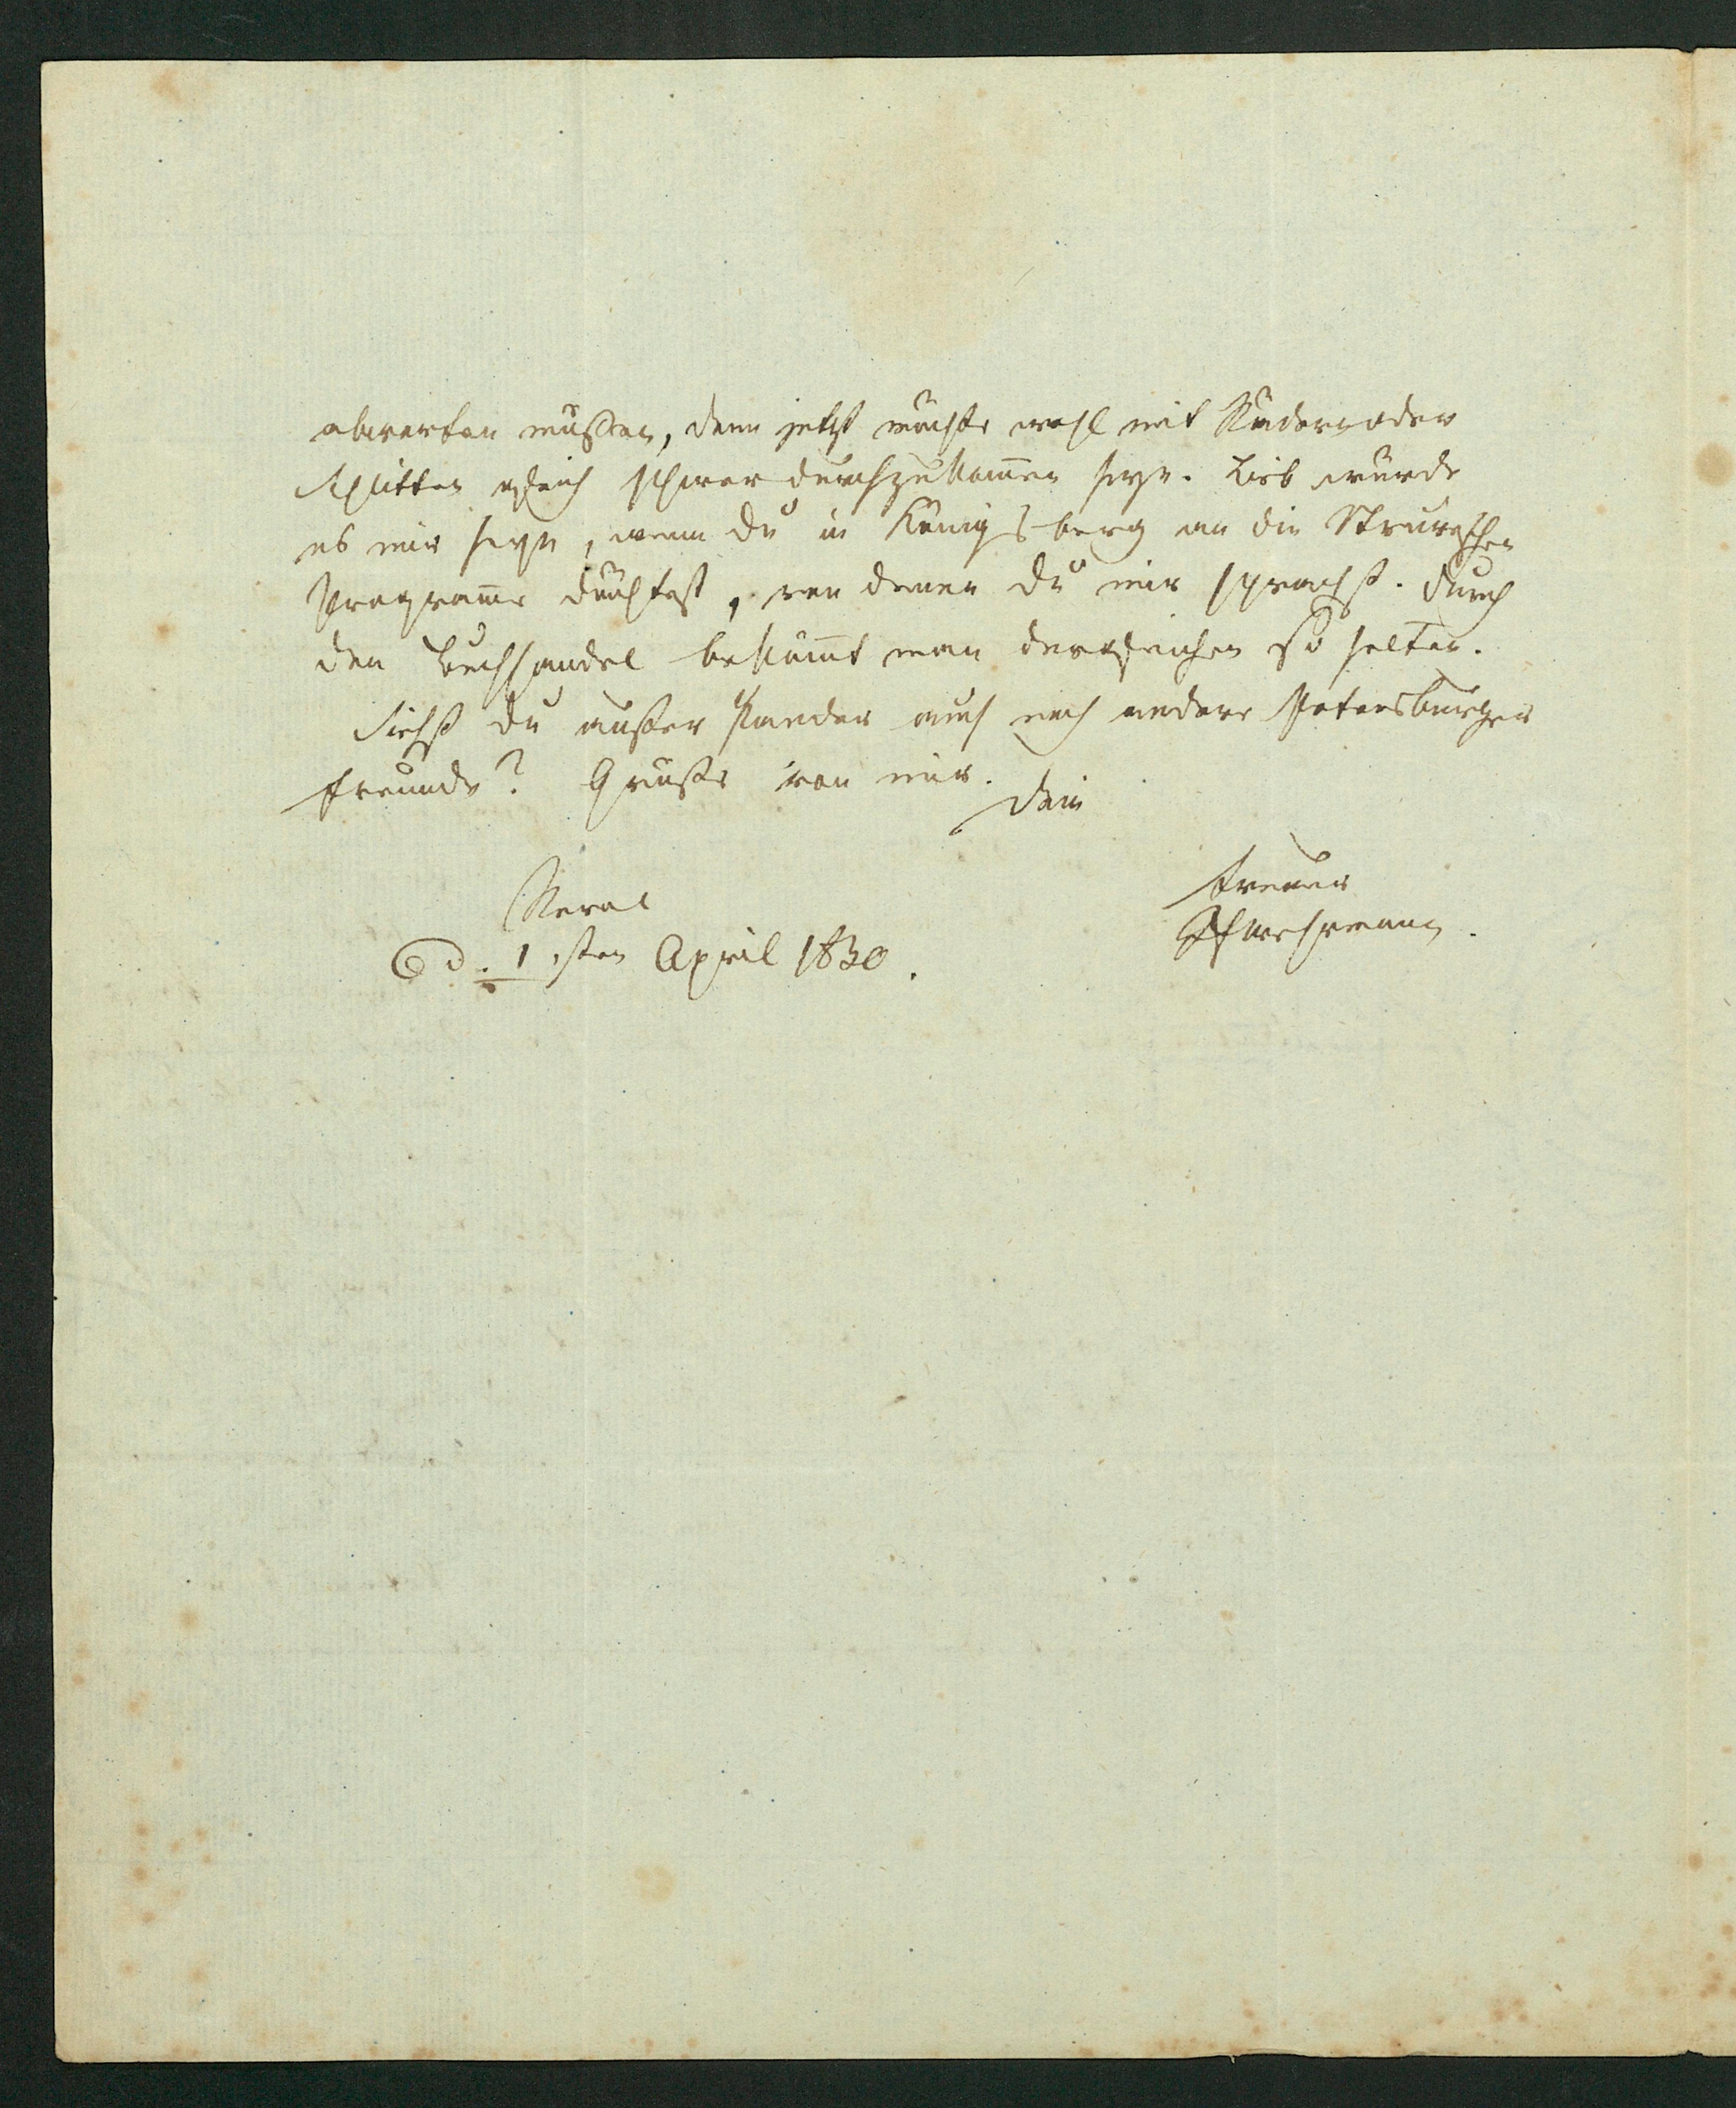 abwarten müssen, denn jetzt möchte wohl mit Rädern oder
Schlitten gleich schwer durchzukom̅en seyn. Lieb würde
es mir seyn, wenn du in Königsberg an die Struveschen
Program̅e dächtest, von denen du mir sprachst. Durch
den Buchhandel beköm̅t man dergleichen so selten.
Siehst du außer Pander auch noch andere Petersburger
Freunde? Grüße von mir.
Dein
treuer
Reval
d. 1sten April 1830.